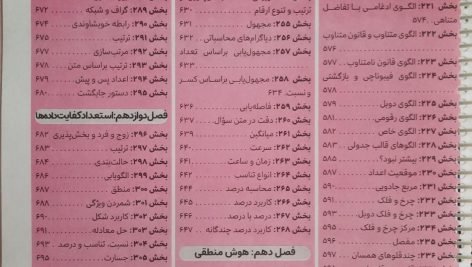 بخش ۲۲۱: الگوی ادغامی با تفاضل
متناهی ۵۷۴
بخش ۲۲۲: الگوی متناوب و قانون متناوب
۵۷۶
بخش ۲۲۳: الگوی قانون نامتناوب ۵۷۷
بخش ۲۲۴: الگوی فیبوناچی و بازگشتی
۵۷۸
بخش ۲۲۵: الگوی دوبل ۵۷۹
بخش ۲۲۶: الگوی رقومی ۵۸۱
بخش ۲۲۷: الگوی خاص ۵۸۲
بخش ۲۲۸: الگوهای قالب جدولی ۵۸۳
بخش ۲۲۹: بیشتر نبود؟ ۵۸۵
بخش ۲۳۰: موقعیت اعداد ۵۸۷
بخش ۲۳۱: مربع جادویی ۵۹۰
بخش ۲۳۲: چرخ و فلک ۵۹۲
بخش ۲۳۳: چرخ و فلک دوبل ۵۹۳
بخش ۲۳۴: مرکز چرخ و فلک ۵۹۵
بخش ۲۳۵: مفصل ۵۹۶
بخش ۲۳۶: چندقلوهای همسان ۵۹۷
ترتیب و تنوع ارقام ۶۳۰
بخش ۲۵۵: مجهول ۶۳۱
بخش ۲۵۶: دیاگرام‌های محاسباتی ۶۳۲
بخش ۲۵۷: مجهول‌یابی براساس تعداد
۶۳۳
بخش ۲۵۸: مجهول‌یابی براساس کسر
و نسبت ۶۳۴
بخش ۲۵۹: فاصله‌یابی ۶۳۶
بخش ۲۶۰: دقت در متن سؤال ۶۳۷
بخش ۲۶۱: میانگین ۶۳۹
بخش ۲۶۲: سرعت ۶۴۰
بخش ۲۶۳: زمان و ساعت ۶۴۱
بخش ۲۶۴: انواع تناسب ۶۴۲
بخش ۲۶۵: محاسبه درصد ۶۴۴
بخش ۲۶۶: درصد با درصد ۶۴۵
بخش ۲۶۷: کاربرد درصد ۶۴۶
بخش ۲۶۸: کاربرد درصد چندگانه ۶۴۷
فصل دهم: هوش منطقی
بخش ۲۸۹: گراف و شبکه ۶۷۲
بخش ۲۹۰: رابطه خویشاوندی ۶۷۴
بخش ۲۹۱: ترتیب ۶۷۵
بخش ۲۹۲: مرتب‌سازی ۶۷۷
بخش ۲۹۳: ترتیب براساس متن ۶۷۸
بخش ۲۹۴: اعداد پس و پیش ۶۷۹
بخش ۲۹۵: دستور جایگشت ۶۸۰
فصل دوازدهم: استعداد کفایت داده‌ها
بخش ۲۹۶: زوج و فرد و بخش‌پذیری ۶۸۲
بخش ۲۹۷: ترتیب ۶۸۳
بخش ۲۹۸: حالت‌بندی ۶۸۴
بخش ۲۹۹: الگویابی ۶۸۶
بخش ۳۰۰: منطق ۶۸۷
بخش ۳۰۱: شمردن ویژگی ۶۸۸
بخش ۳۰۲: کاربرد شکل ۶۹۰
بخش ۳۰۳: حل معادله ۶۹۱
بخش ۳۰۴: نسبت، تناسب و درصد ۶۹۳
بخش ۳۰۵: جسارت ۶۹۵